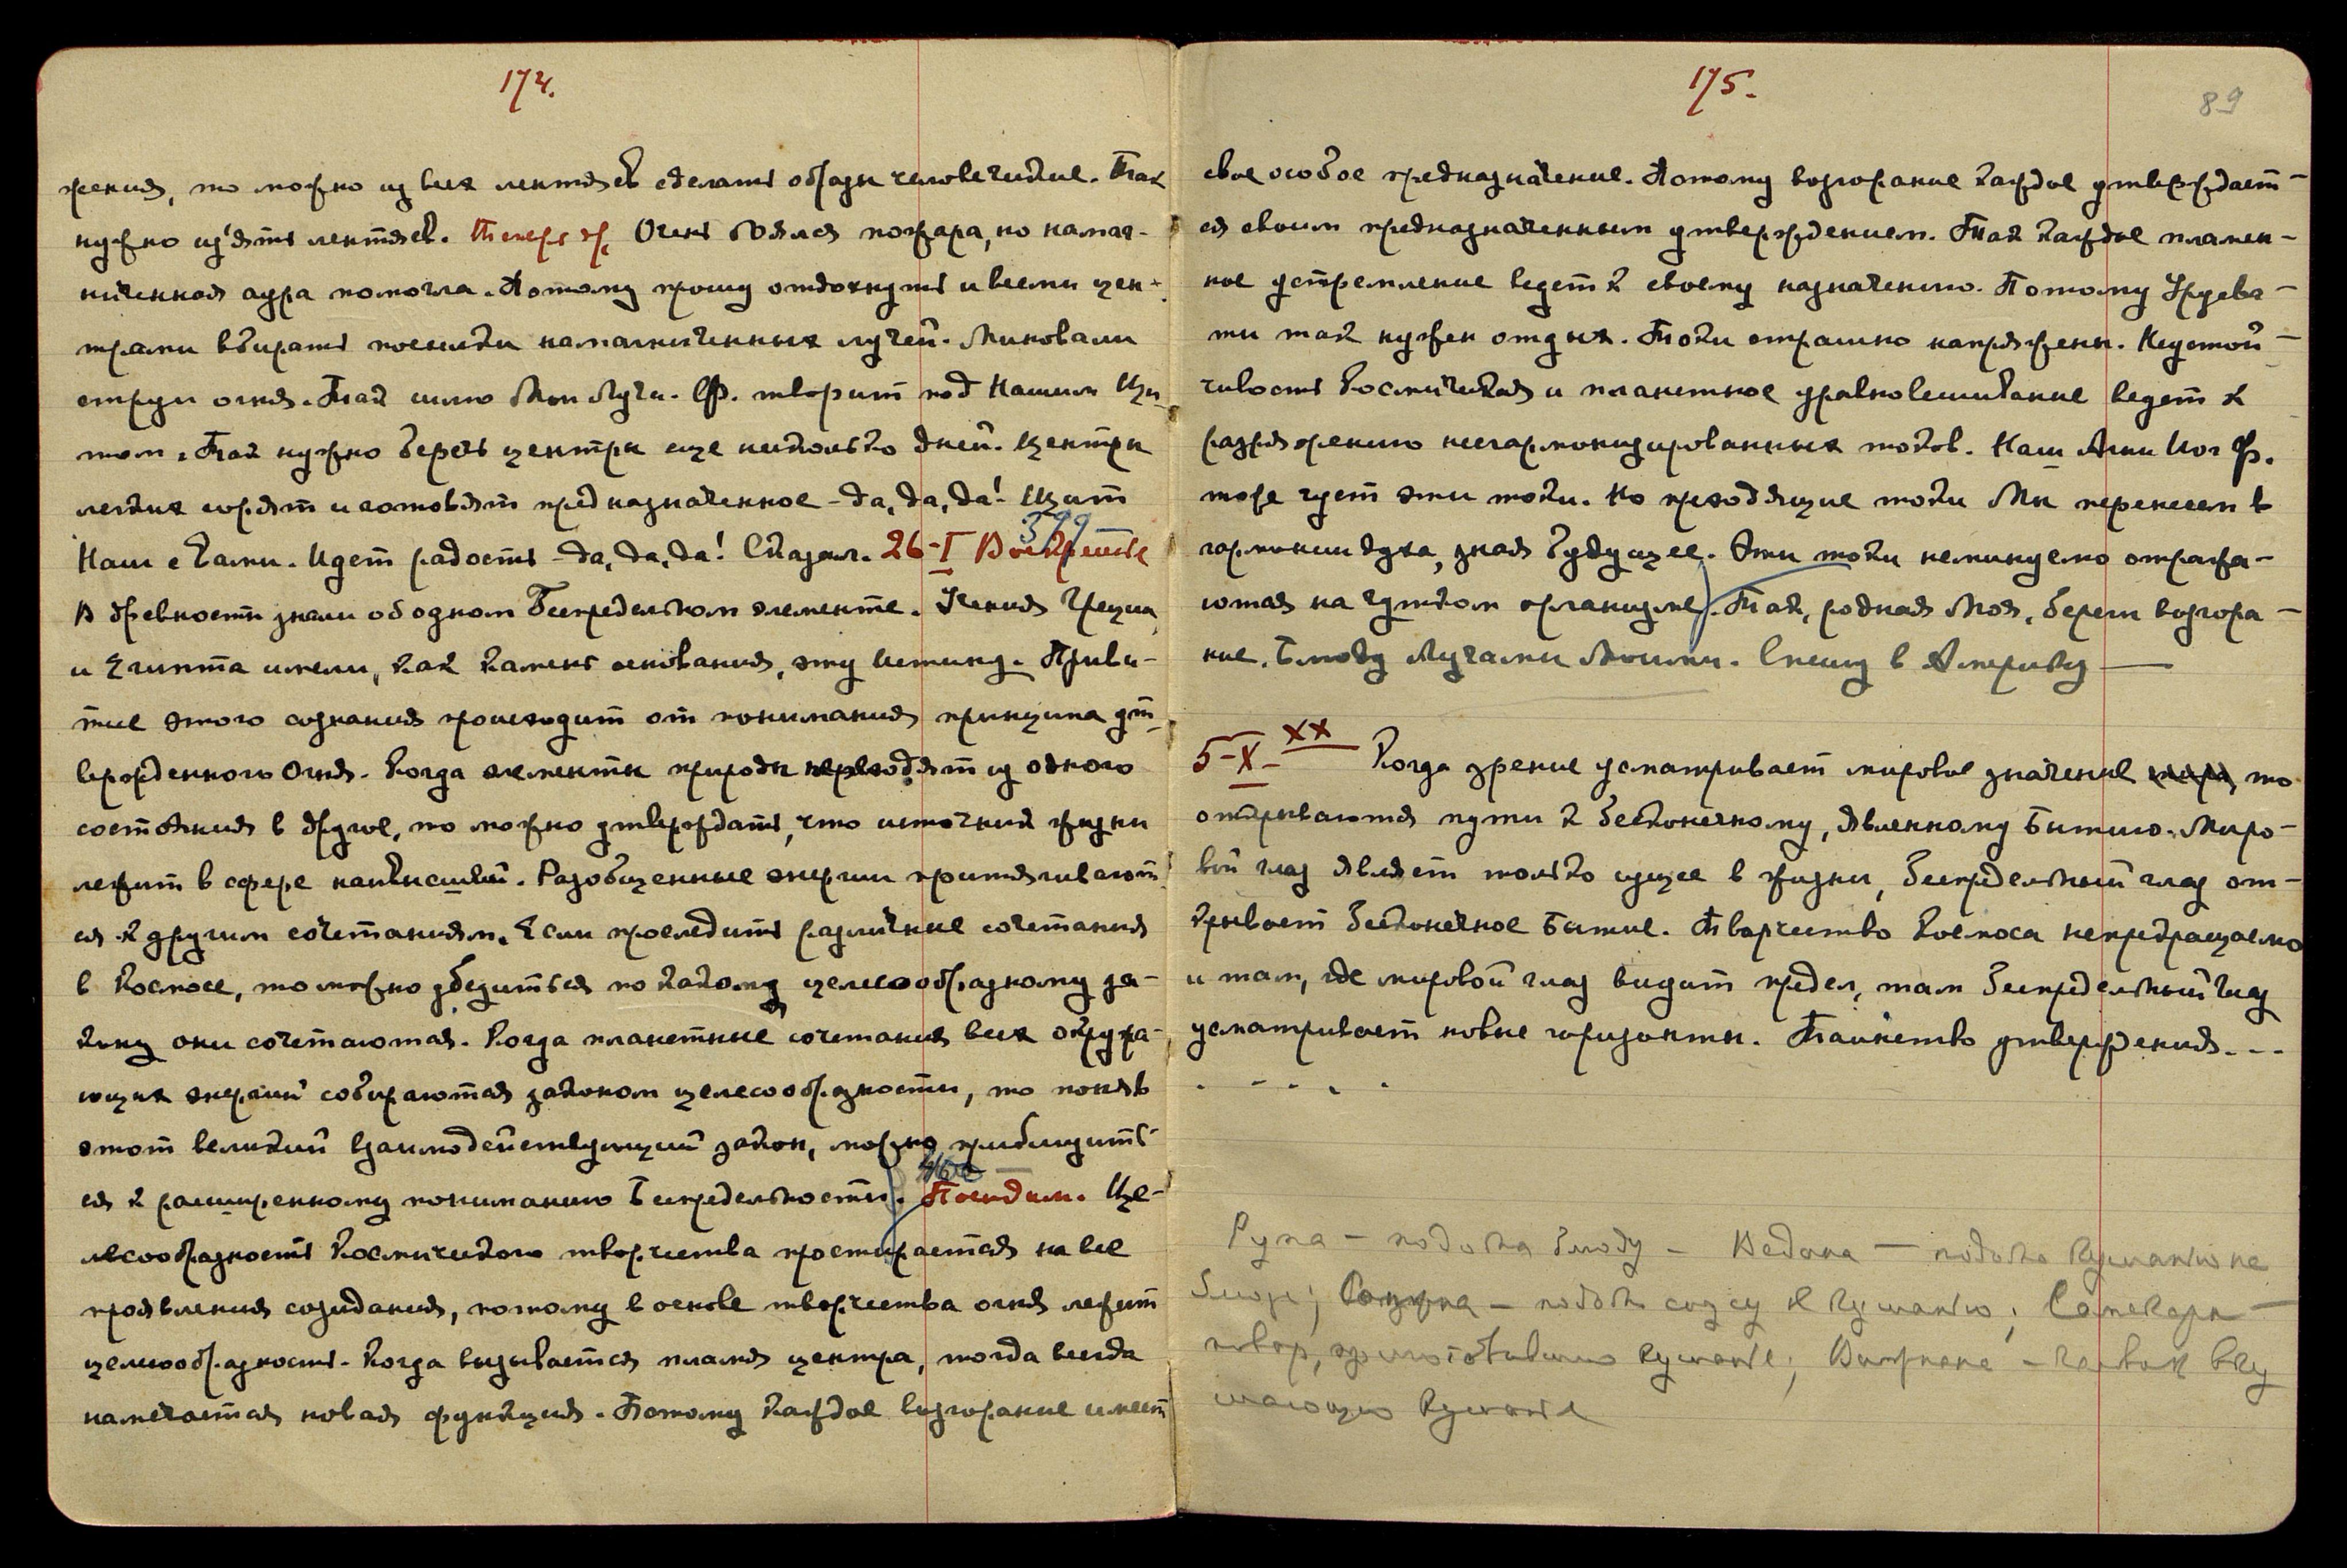 174.
жения, то можно из всех лентяев сделать образы человеческие. Так
нужно из'ять лентяев. Теперь др. Очень боялся пожара, но намаг-
ниченная аура помогла. Потому прошу отдохнуть и всеми цен-
трами вбирать посылки намагниченных лучей. Миновали
струи огня. Так шлю Мои Лучи. Ф. творит под Нашим Щи-
том. Так нужно беречь центры еще несколько дней. Центры
легких горят и готовят предназначенное – да, да, да! Щит
399
Наш с Вами. Идет радость – да, да, да! Сказал. 26-I Воскресенье
В древности знали об одном Беспредельном элементе. Учения Греции
и Египта имели, как камень основания, эту Истину. Приви-
тие этого сознания происходит от понимания принципа ут-
вержденного Огня. Когда элементы природы переходят из одного
состояния в другое, то можно утверждать, что источник жизни
лежит в сфере наивысшей. Разобщенные энергии притягивают-
ся к другим сочетаниям. Если проследить различные сочетания
в Космосе, то можно убедиться по какому целесообразному за-
кону они сочетаются. Когда планетные сочетания всех окружа-
ющих энергий собираются законом целесообразности, то поняв
этот великий взаимодействующий закон, можно приблизить-
400
ся к расширенному пониманию Беспредельности. Посидим. Це-
лесообразность Космического творчества простирается на все
проявления созидания, потому в основе творчества огня лежит
целесообразность. Когда вызывается пламя центра, тогда всегда
намечается новая функция. Потому каждое возгорание имеет
175.
89
свое особое предназначение. Потому возгорание каждое утверждает-
ся своим предназначенным утверждением. Так каждое пламен-
ное устремление ведет к своему назначению. Потому Урусва-
ти так нужен отдых. Токи страшно напряжены. Неустой-
чивость Космическая и планетное уравновешивание ведет к
разряжению несгармонизированных токов. Наш Агни Йог Ф.
тоже чует эти токи. Но преходящие токи Мы перенесем в
гармонии духа, зная будущее. Эти токи неминуемо отража-
ются на чутком организме. Так, родная Моя, береги возгора-
ние. Блюду Лучами Моими. Спешу в Америку —
5-X- XX Когда зрение усматривает мировое значение то
открываются пути к бесконечному, явленному Бытию. Миро-
вой глаз являет только сущее в жизни, беспредельный глаз от-
крывает бесконечное Бытие. Творчество Космоса непрекращаемо
и там, где мировой глаз видит предел, там беспредельный глаз
усматривает новые горизонты. Таинство утверждения...
. . . . .
Рупа – подобна блюду – Ведана – подобна кушанью на
блюде; – подобна соусу к кушанью; Самскара –
повар, приготовивший кушанье; – человек вку
шающий кушанье